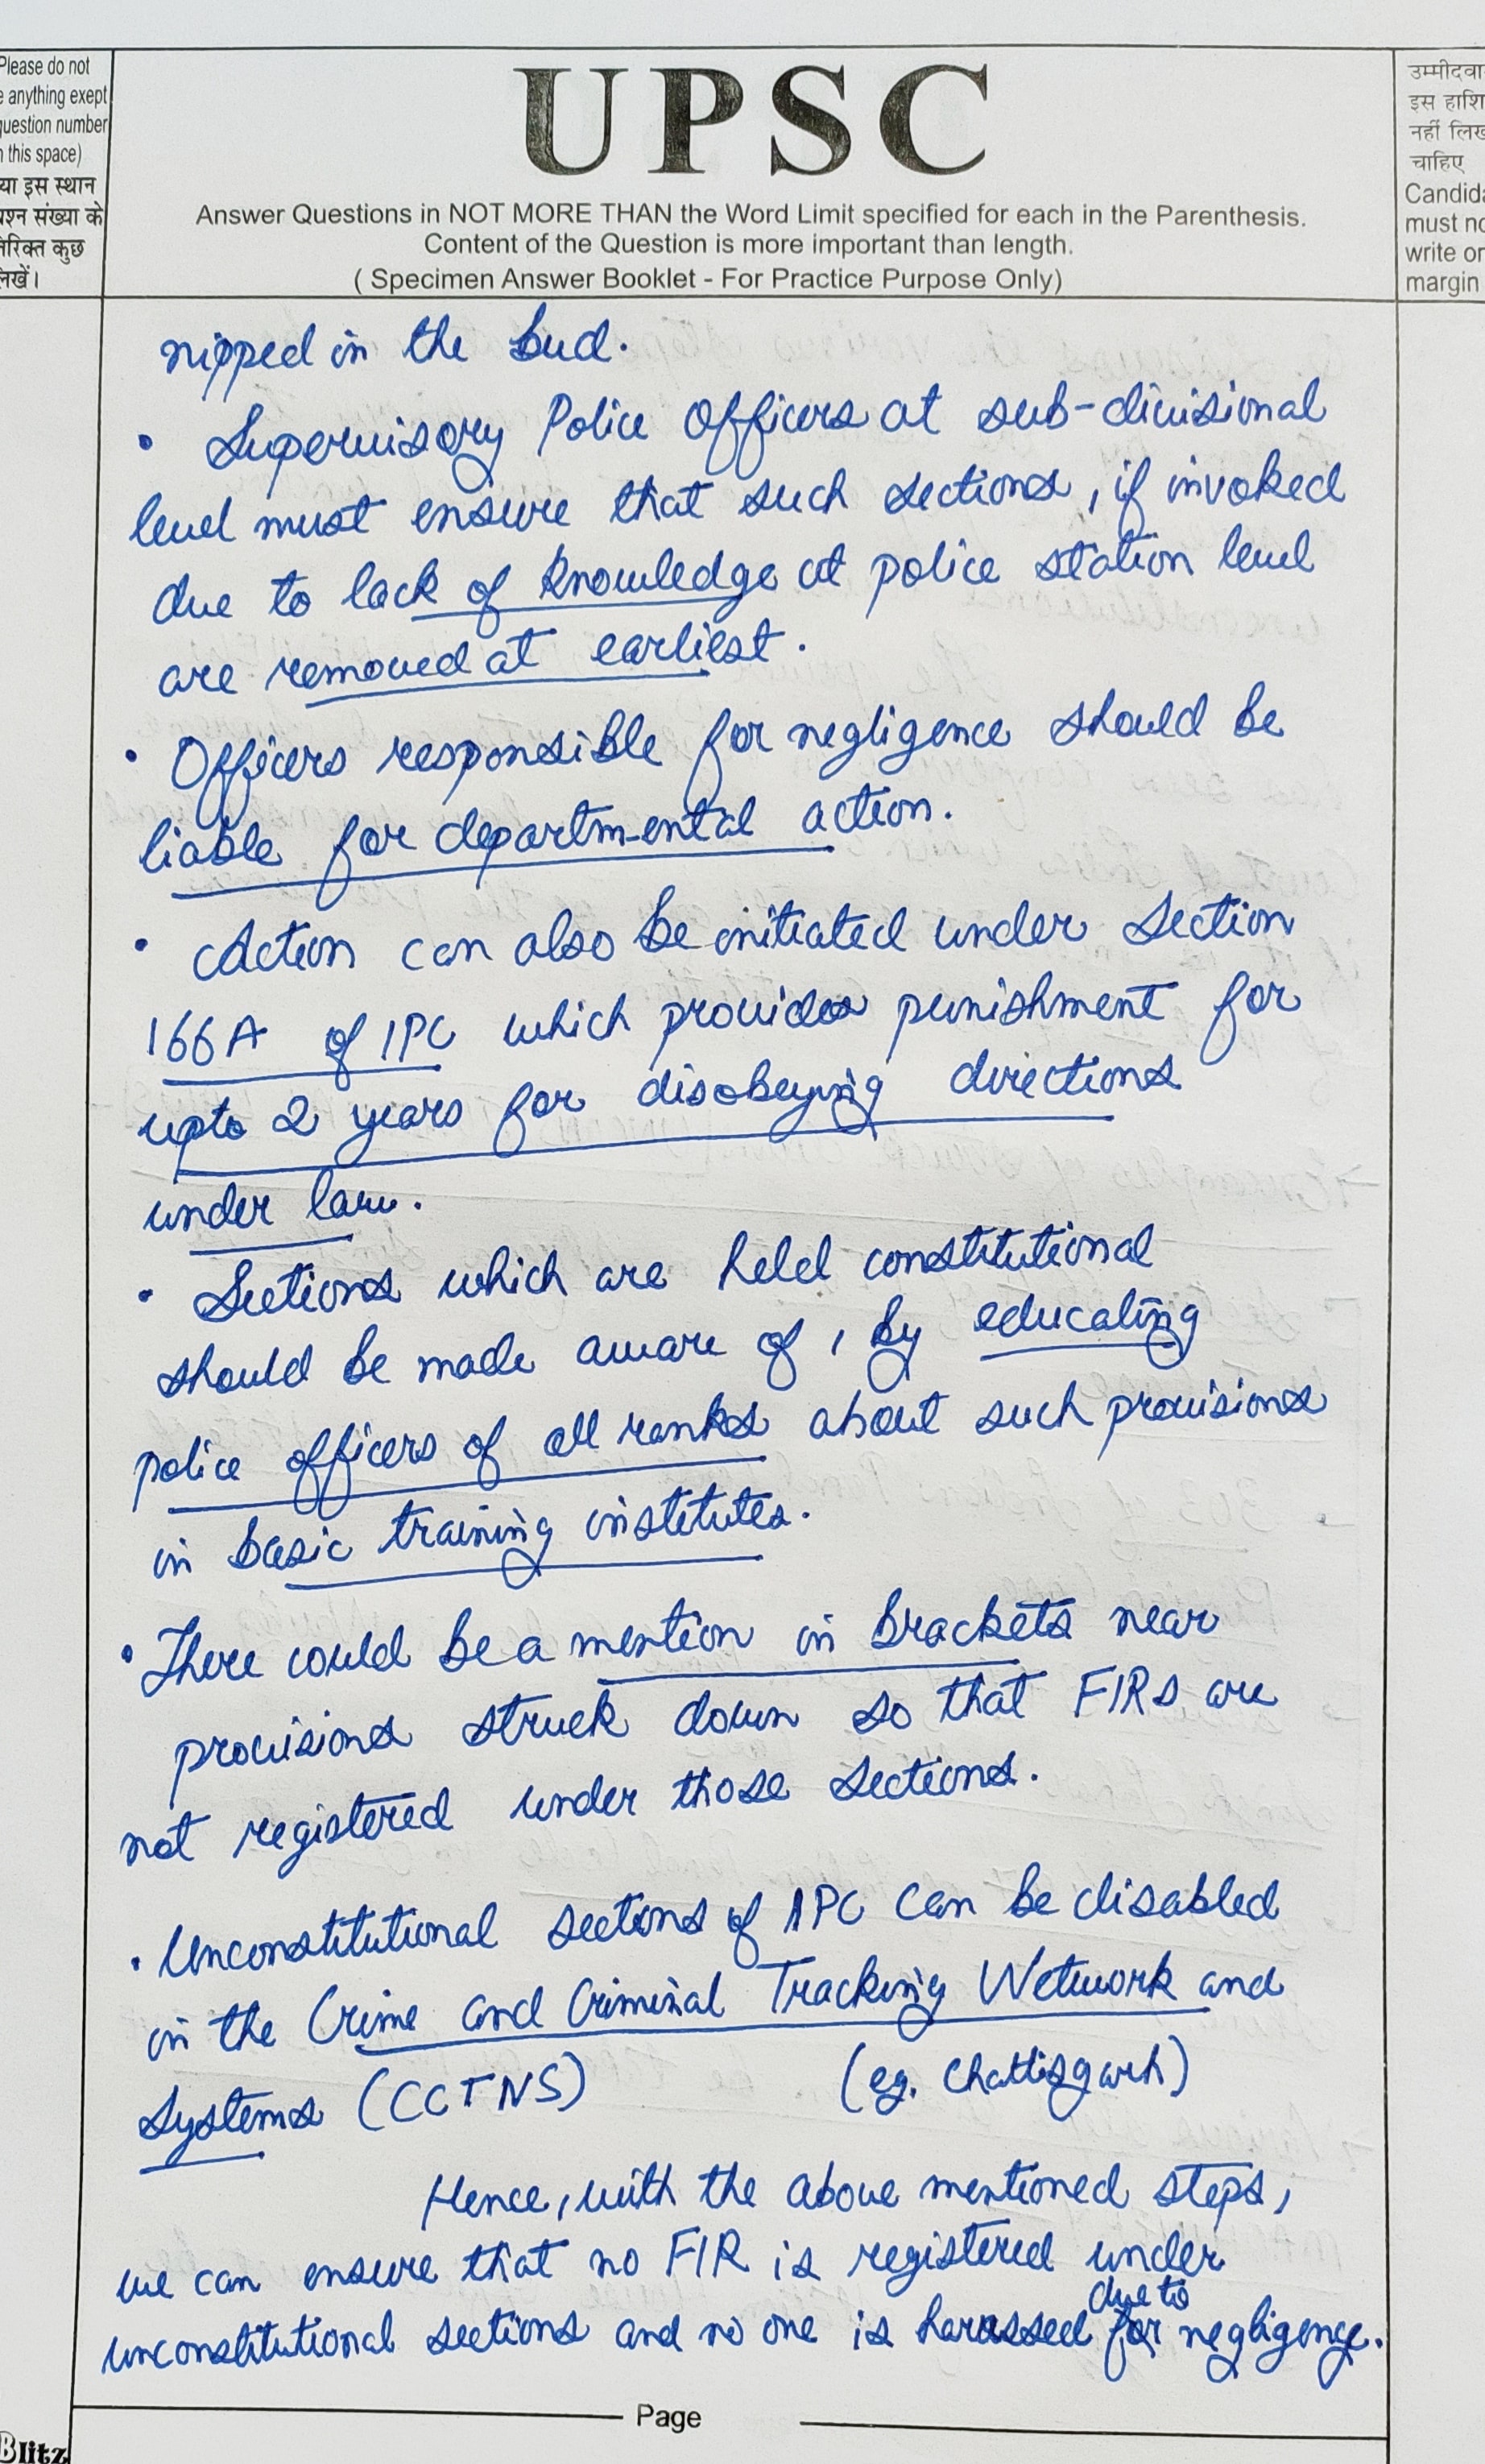 Please do not
e anything exept
question number
n this space)
या इस स्थान
प्रश्न संख्या के
तिरिक्त कुछ
लिखें।
UPSC
Answer Questions in NOT MORE THAN the Word Limit specified for each in the Parenthesis.
Content of the Question is more important than length.
( Specimen Answer Booklet - For Practice Purpose Only)
उम्मीदवा
इस हाशि
नहीं लिख
चाहिए
Candida
must no
write or
margin
nipped in the bud.
• Supervisory Police Officers at sub-divisional
level must ensure that such sections, if invoked
due to lack of knowledge at police station level
are removed at earliest.
• Officers responsible for negligence should be
liable for departm-ental action.
• Action can also be initiated under Section
166A of IPC which provides punishment for
upto 2 years for disobeying directions
under law.
• Sections which are held constitutional
should be made aware of, by educating
police officers of all ranks about such provisions
in basic training institutes.
• There could be a mention in brackets near
provisions struck down so that FIRs are
not registered under those sections.
• Unconstitutional sections of IPC can be disabled
in the Crime and Criminal Tracking Network and
Systems (CCTNS) (eg. Chattisgarh)
Hence, with the above mentioned steps,
we can ensure that no FIR is registered under
due to
unconstitutional sections and no one is harassed for negligence.
Page
Blitz